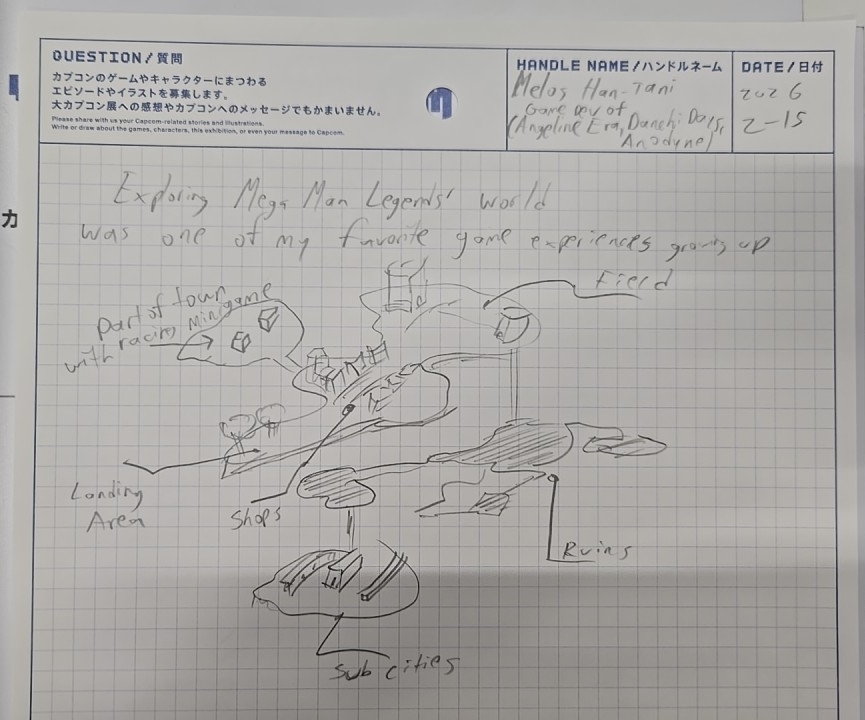 QUESTION / 質問
カプコンのゲームやキャラクターにまつわる
エピソードやイラストを募集します。
大カプコン展への感想やカプコンへのメッセージでもかまいません。
Please share with us your Capcom-related stories and illustrations.
Write or draw about the games, characters, this exhibition, or even your message to Capcom.
HANDLE NAME / ハンドルネーム
Melos Han-Tani
Game Dev of
(Angeline Era, Danchi Days,
Anodyne)
DATE / 日付
2026
2-15
カ
Exploring Mega Man Legends' world
was one of my favorite game experiences growing up
Field
Part of town
with racing minigame
Landing
Area
Shops
Ruins
Sub cities